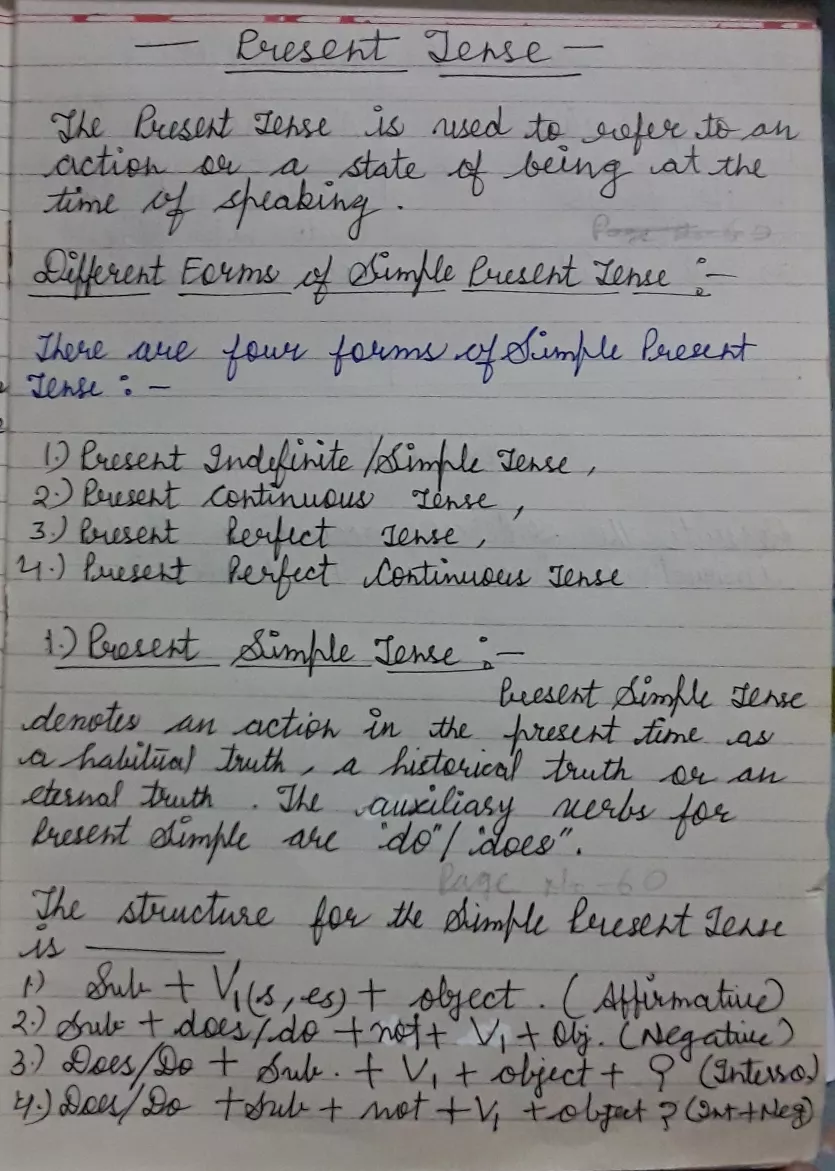 — Present Tense —
The Present Tense is used to refer to an
action or a state of being at the
time of speaking.
Different Forms of Simple Present Tense :-
There are four forms of Simple Present
Tense : -
1.) Present Indefinite /Simple Tense,
2.) Present Continuous Tense,
3.) Present Perfect Tense,
4.) Present Perfect Continuous Tense
1.) Present Simple Tense :-
Present Simple Tense
denotes an action in the present time as
a habitual truth, a historical truth or an
eternal truth. The auxiliary verbs for
Present Simple are "do"/"does".
Page No-60
The structure for the Simple Present Tense
is ———
1) Sub + V₁(s, es) + object. (Affirmative)
2.) Sub + does/do + not + V₁ + Obj. (Negative)
3.) Does/Do + Sub. + V₁ + object + ? (Interro.)
4.) Does/Do + Sub + not + V₁ + object ? (Int+Neg)